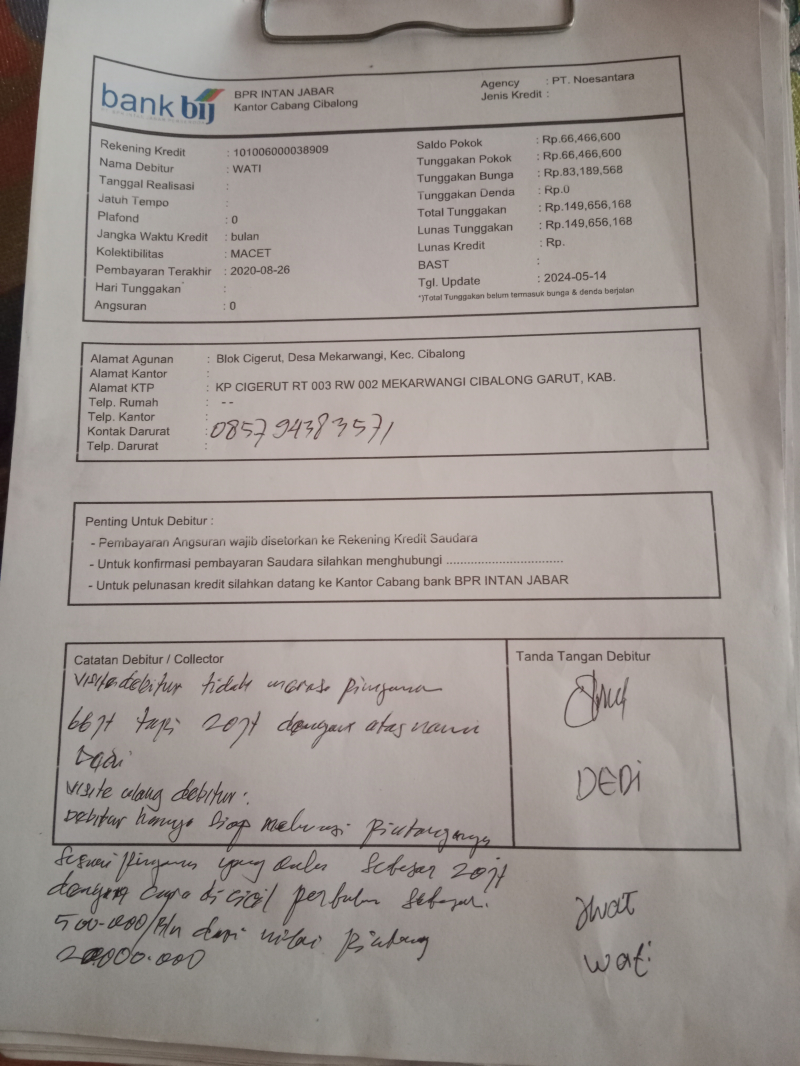 bank bij
BPR INTAN JABAR
Kantor Cabang Cibalong
Agency : PT. Noesantara
Jenis Kredit :
Rekening Kredit : 101006000038909
Nama Debitur : WATI
Tanggal Realisasi :
Jatuh Tempo :
Plafond : 0
Jangka Waktu Kredit : bulan
Kolektibilitas : MACET
Pembayaran Terakhir : 2020-08-26
Hari Tunggakan :
Angsuran : 0
Saldo Pokok : Rp.66,466,600
Tunggakan Pokok : Rp.66,466,600
Tunggakan Bunga : Rp.83,189,568
Tunggakan Denda : Rp.0
Total Tunggakan : Rp.149,656,168
Lunas Tunggakan : Rp.149,656,168
Lunas Kredit : Rp.
BAST :
Tgl. Update : 2024-05-14
*)Total Tunggakan belum termasuk bunga & denda berjalan
Alamat Agunan : Blok Cigerut, Desa Mekarwangi, Kec. Cibalong
Alamat Kantor :
Alamat KTP : KP CIGERUT RT 003 RW 002 MEKARWANGI CIBALONG GARUT, KAB.
Telp. Rumah : --
Telp. Kantor :
Kontak Darurat : 085794383571
Telp. Darurat :
Penting Untuk Debitur :
- Pembayaran Angsuran wajib disetorkan ke Rekening Kredit Saudara
- Untuk konfirmasi pembayaran Saudara silahkan menghubungi ................................
- Untuk pelunasan kredit silahkan datang ke Kantor Cabang bank BPR INTAN JABAR
Catatan Debitur / Collector
Visite debitur tidak merasa
66jt tapi 20jt dengan atas nama
Dedi
Visite ulang debitur :
Debitur hanya siap melunasi
sesuai yang sebesar 20jt
dengan cara di cicil perbulan sebesar.
500.000/Bln dari nilai
20.000.000
Tanda Tangan Debitur
DEDi
wati